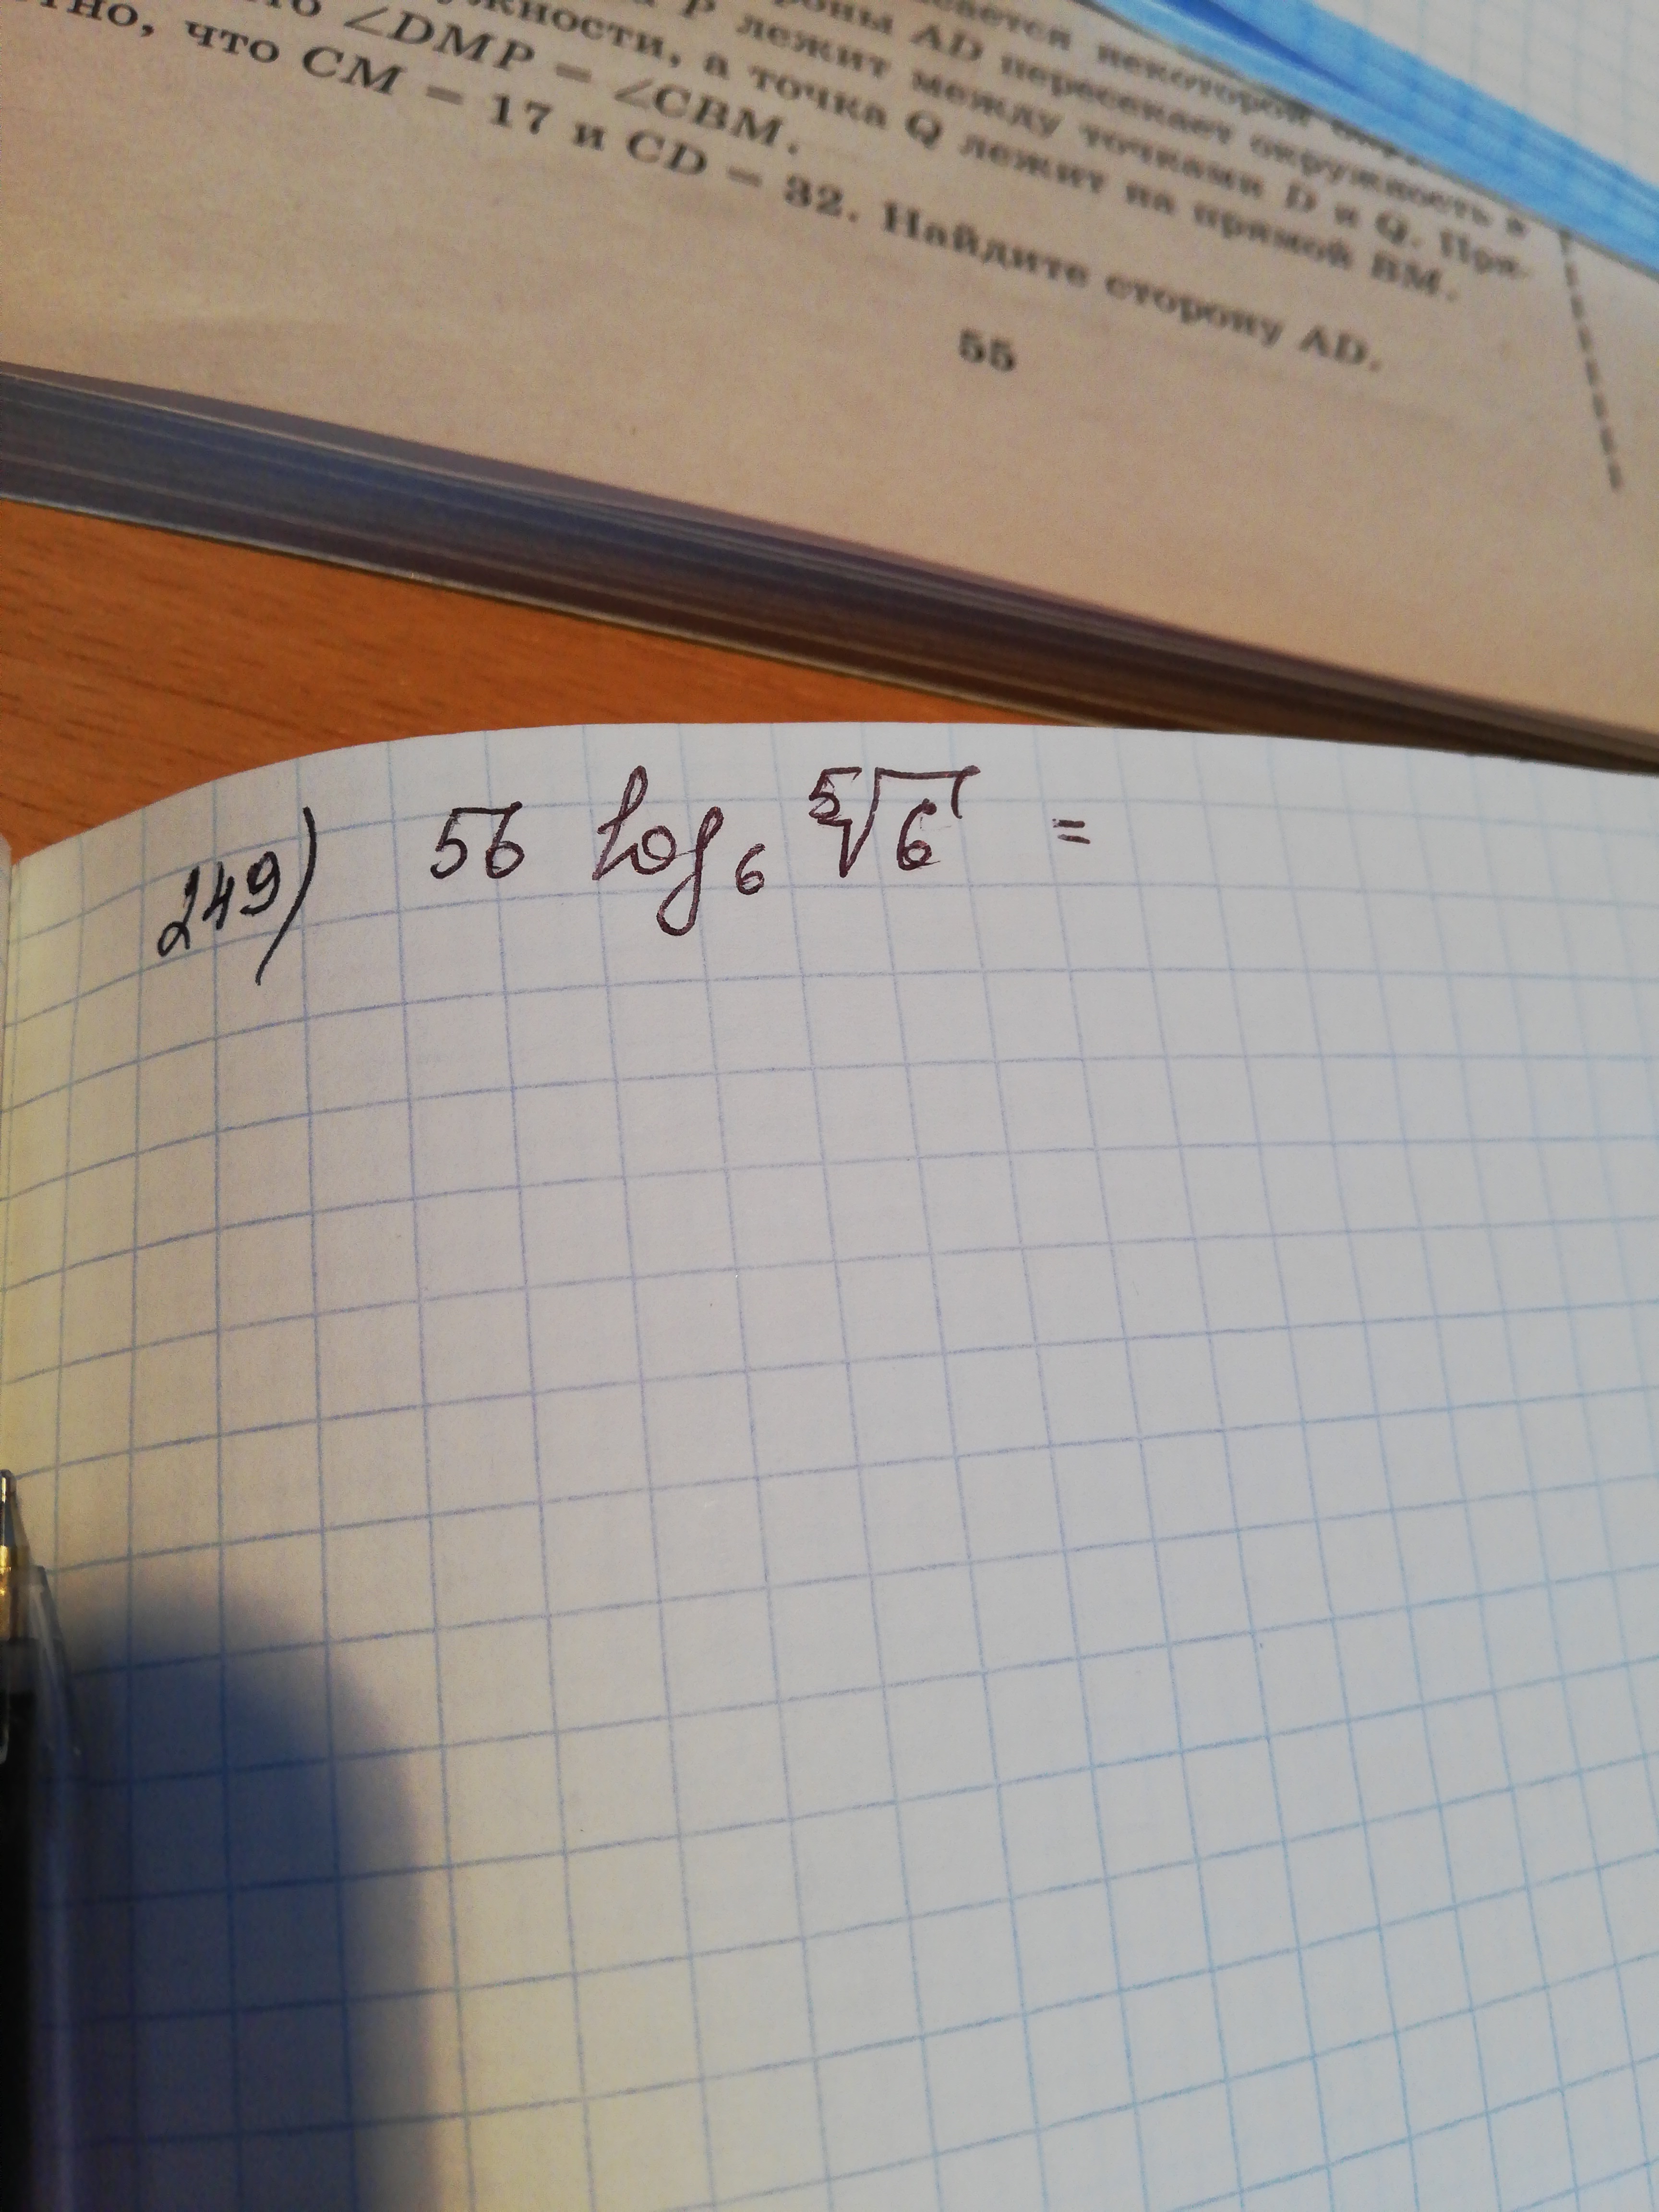 AD пересекает окружность в
P лежит между точками D и Q. Пря-
а точка Q лежит на прямой BM.
∠DMP = ∠CBM.
что CM = 17 и CD = 32. Найдите сторону AD.
55
249) 56 log₆ ⁵√6 =